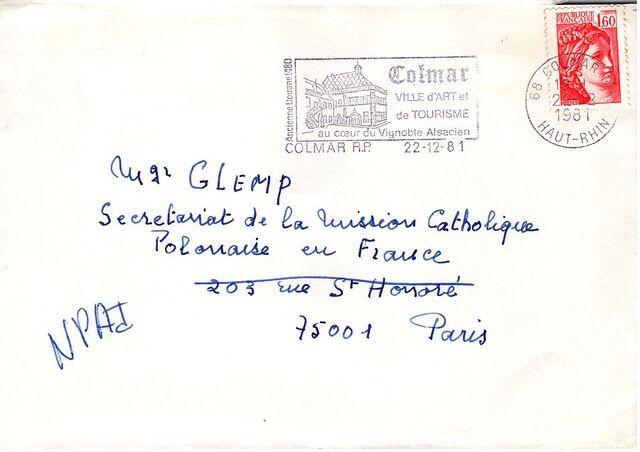 REPUBLIQUE
FRANÇAISE 1,60
Ancienne Douane 1480
Colmar
VILLE d'ART et
de TOURISME
au cœur du Vignoble Alsacien
COLMAR R.P. 22-12-81
68 COLMAR
1981
HAUT-RHIN
Mgr GLEMP
Secretariat de la Mission Catholique
Polonaise en France
203 rue St Honoré
75001 Paris
NPAI